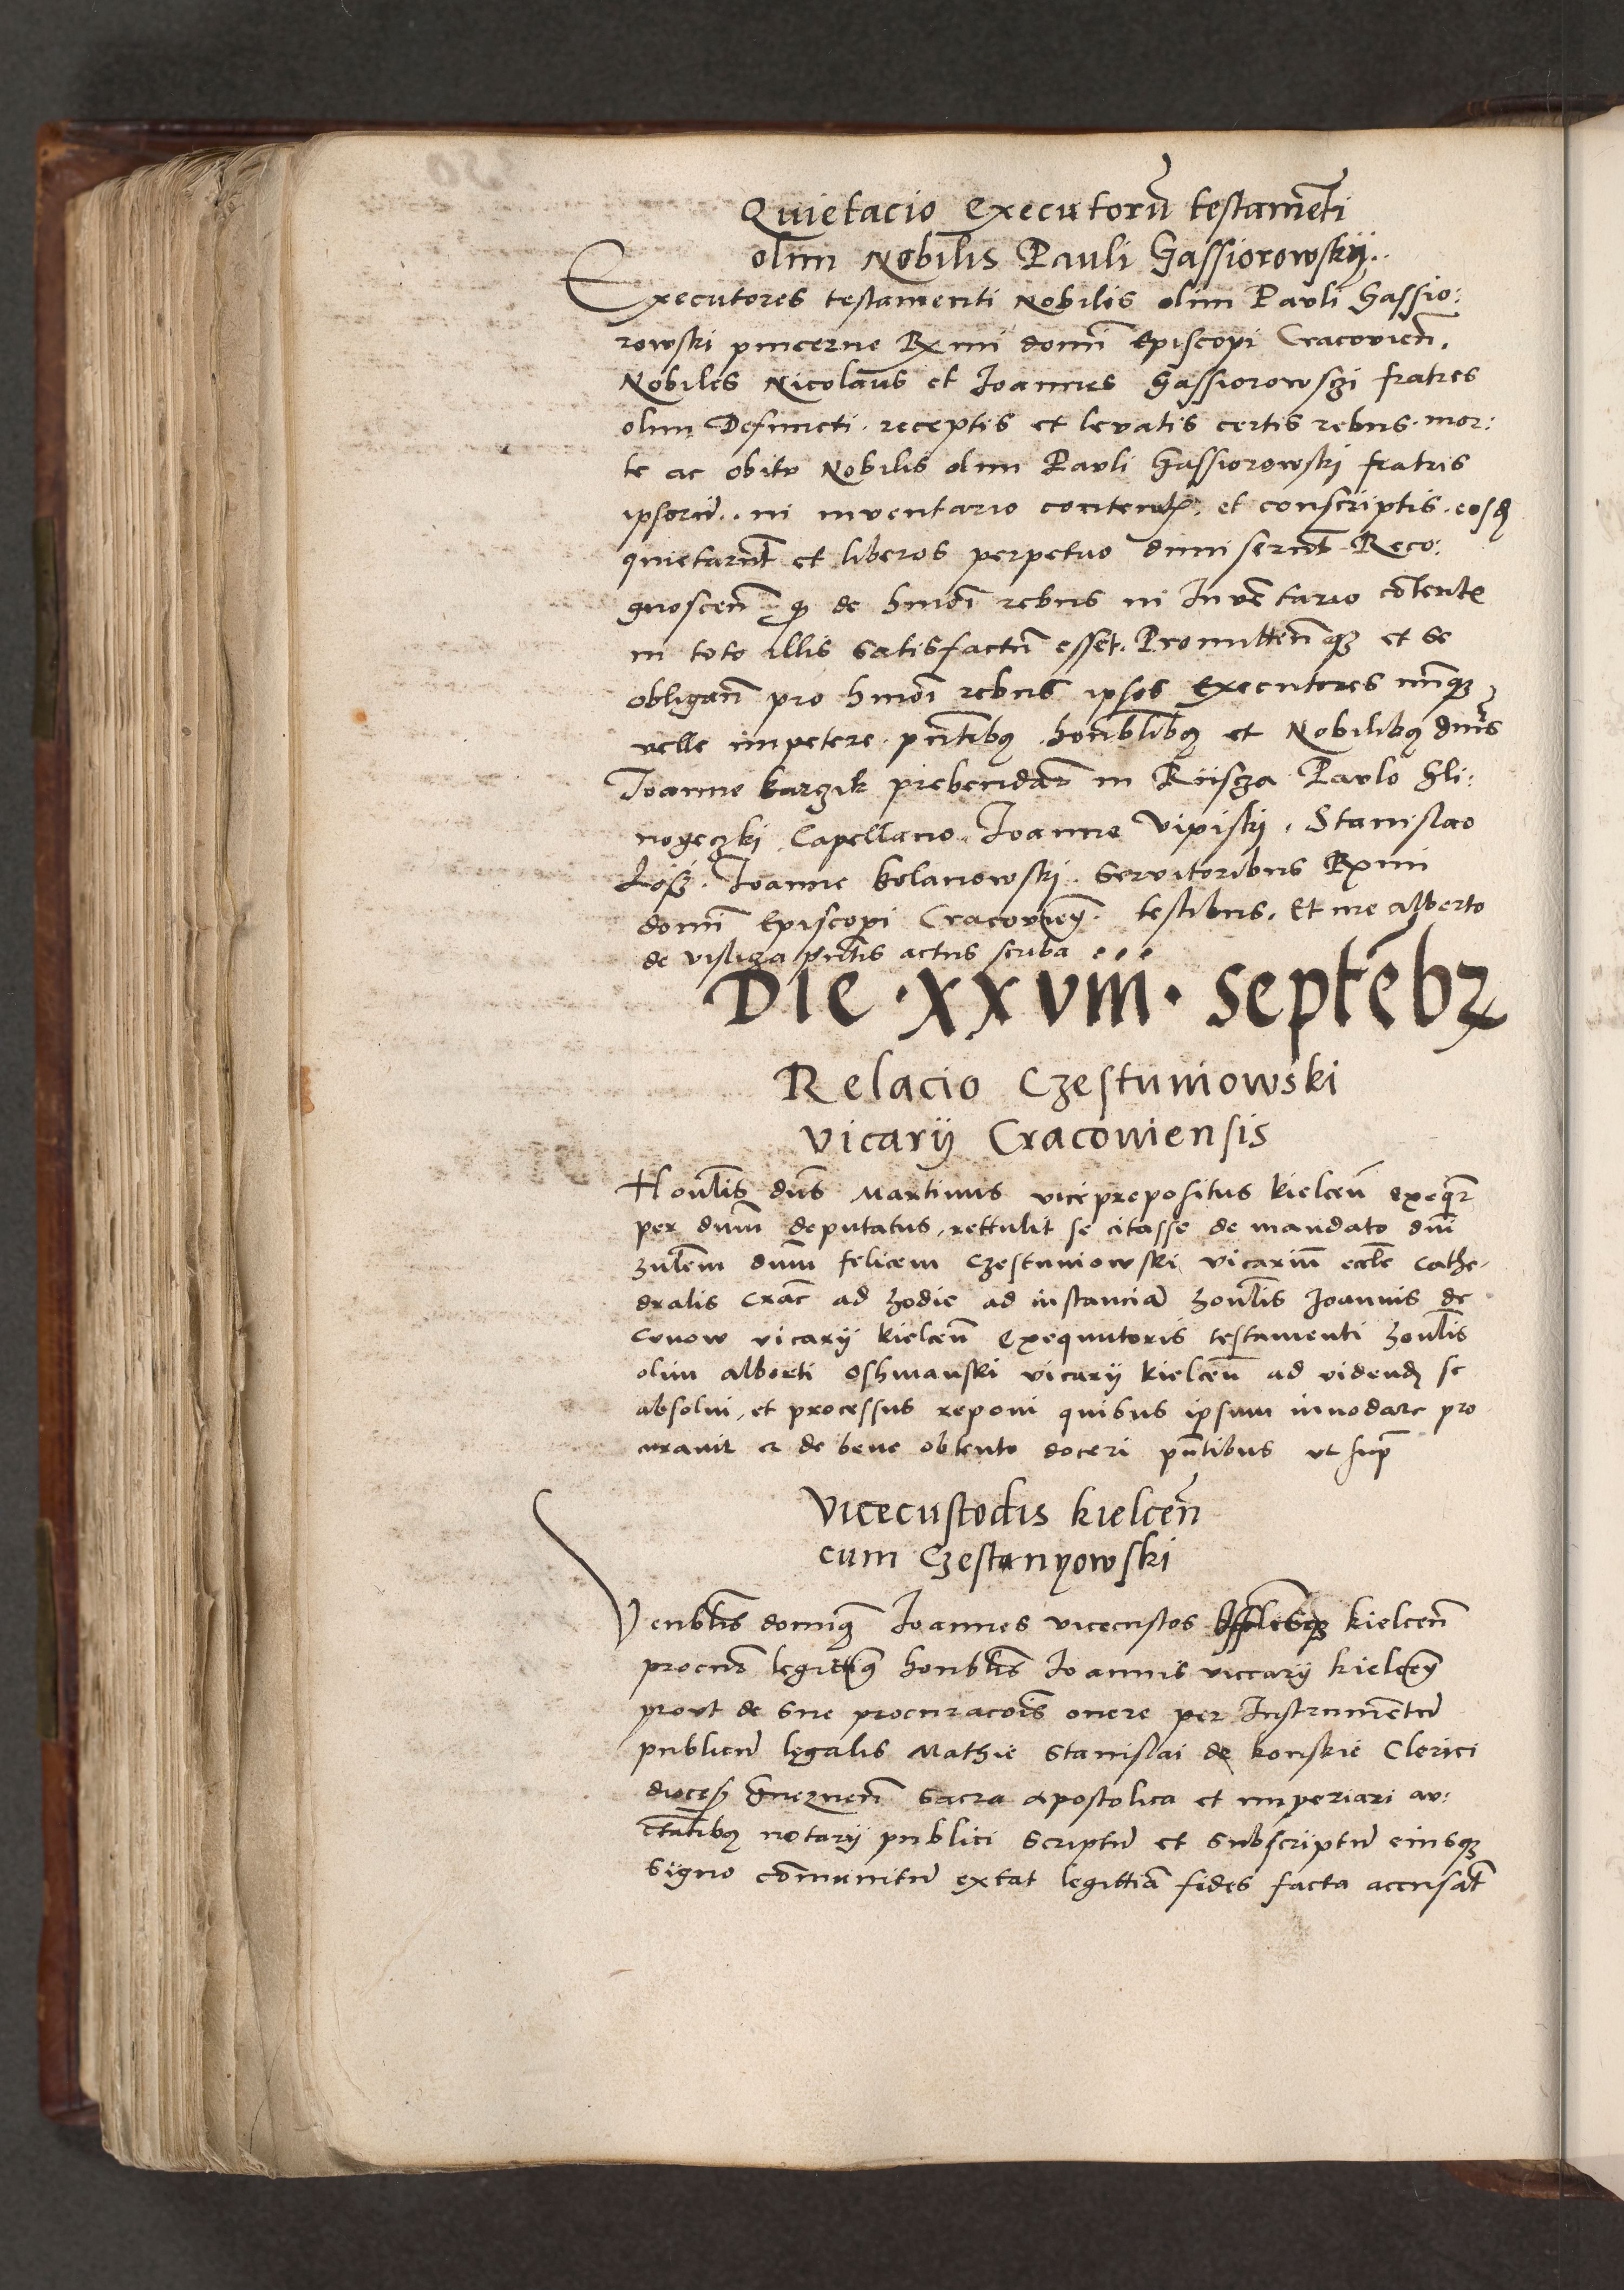 Quietacio Executorũ testamẽti
olim Nobilis Pauli Gassiorowskij..
Executores testamenti Nobilis olim Pauli Gassio:
rowski pincerne Rmi domĩ Episcopi Cracovieñ.
Nobiles Nicolaus et Joannes Gassiorowszi fratres
olim Defuncti. receptis et levatis certis rebus. mor:
te ac obitu Nobilis olim Pauli Gassiorowski fratris
ipsorũ.. in inventario contentꝭ. et conscriptis. eosdẽ
quietarũt et liberos perpetuo dimiserũt. Reco:
gnosceñ ꝙ de hmõi rebus in Inventario cõtentꝭ
in toto illis satisfactũ esset. Promitteñqꝫ et se
obligañ pro hmõi rebus ipsos Executores nũqꝫ
velle impetere. pñtibꝰ. honblibꝰ et Nobilibꝰ dnis
Joanne kurzik prebendar in Rusza Paulo Gli:
nogeczki Capellano. Joanne Vipiski. Stanislao
Joanne kolanowski. Servitoribus Rmi
domĩ Episcopi Cracovieñ. testibus. Et me alberto
de visliza pñtis actus scriba ...
Die · xxviii · septẽbꝫ
Relacio Czestuniowski
vicarij Cracoviensis
Honlis dñs Martinus viceprepositus kielceñ
per dñm deputatus, rettulit se citasse de mandato dñi
dñm felicem Czestuniowski vicariũ eccle cathe-
dralis Crac ad hodie ad instanciã honlis Joannis de
cunow vicarij kielceñ Exequutoris testamenti honlis
olim alberti Oshmanski vicarij kielceñ ad videndꝫ se
absolvi, et processus reponi quibus ipsum innodare pro
curavit et de bene obtento doceri pñtibus ut sup
Vicecustodis kielceñ
cum Czestanyowski
Venblis dominꝰ Joannes vicecustos kielceñ
procur legittimꝰ honblis Joannis viccarij kielceñ
prout de sue procuracõis onere per Instrumẽtũ
publicũ legalis Mathie Stanislai de konskie Clerici
dioces Gnezneñ Sacra apostolica et imperiari au:
ctatibꝰ notarij publici scriptũ et subscriptũ eiusqꝫ
signo cõmunitũ extat legittĩa fides facta accusat